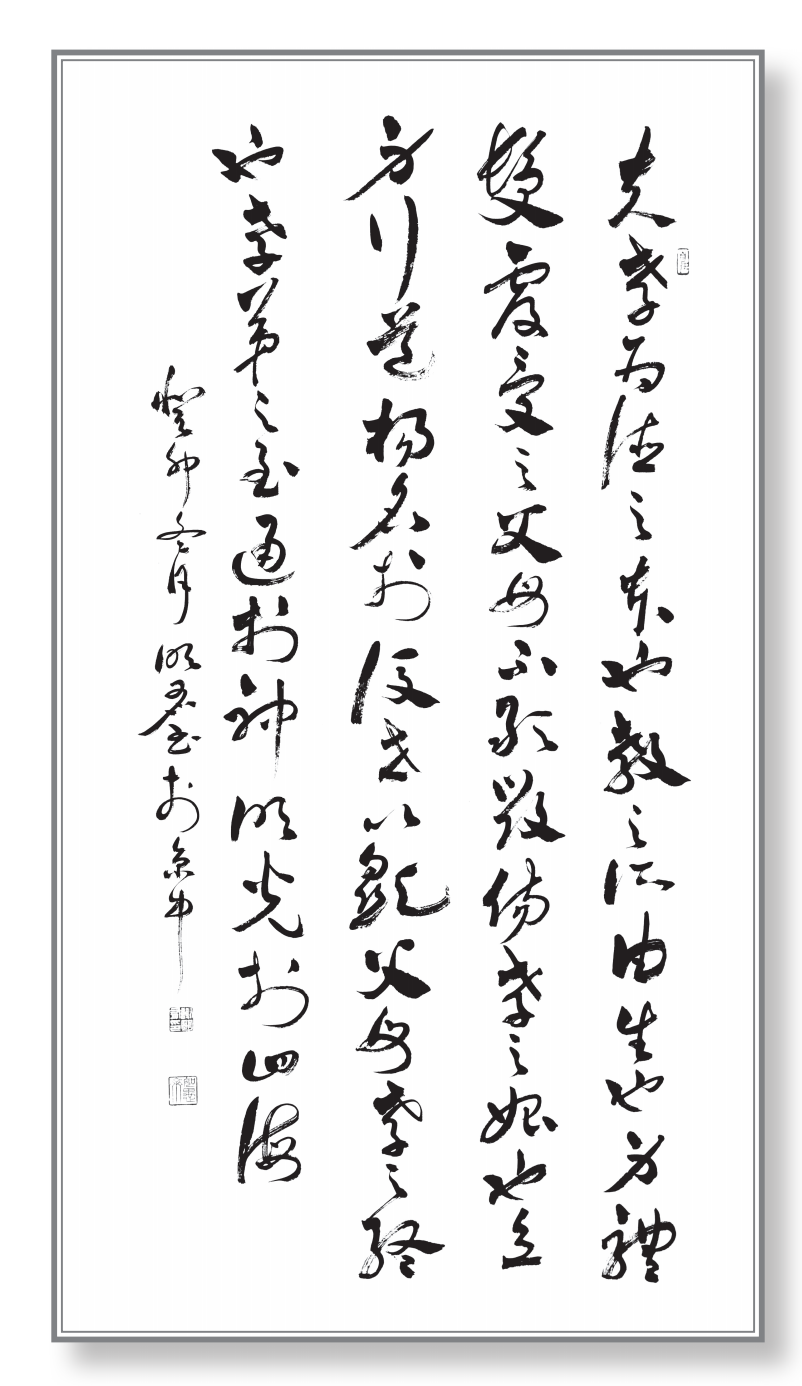 夫孝為德之本也教之所由生也身體
髮膚受之父母不敢毀傷孝之始也立
身行道揚名於後世以顯父母孝之終
也孝弟之至通於神明光於四海
癸卯冬月明於京中